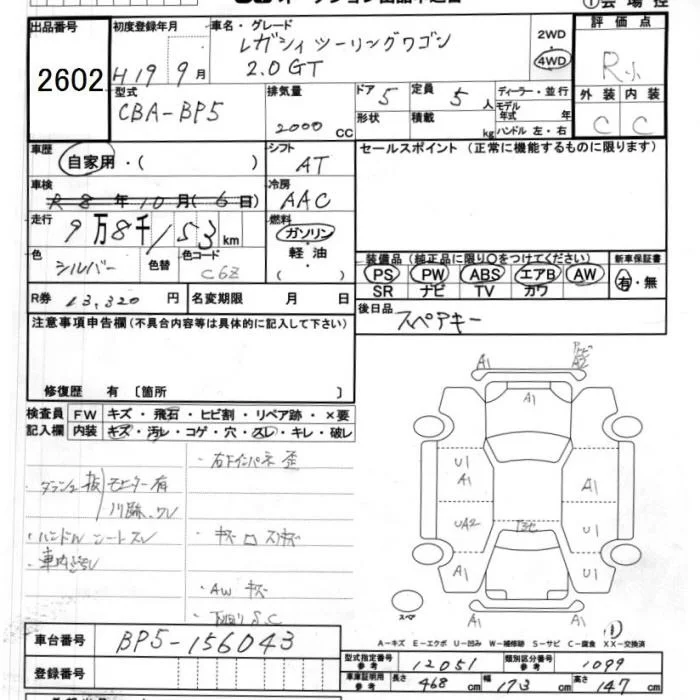 出品番号
2602
初度登録年月
H19 9月
車名・グレード
レガシィ ツーリングワゴン
2.0GT
2WD
4WD
評価点
R小
外装 内装
C C
型式
CBA-BP5
排気量
2000 CC
ドア 5
定員 5人
形状
積載 kg
ディーラー・並行
モデル年式 年
ハンドル 左・右
車歴
自家用・( )
シフト
AT
セールスポイント (正常に機能するものに限ります)
車検
R8年10月(6日)
冷房
AAC
走行
9万8千153km
燃料
ガソリン
軽油
( )
色
シルバー
色替
色コード
C6Z
装備品 (純正品に限り〇をつけてください)
PS PW ABS エアB AW
SR ナビ TV カワ
新車保証書
有・無
R券 13,320円
名変期限 月 日
後日品
スペアキー
注意事項申告欄 (不具合内容等は具体的に記入して下さい)
修復歴 有 〔箇所 〕
検査員記入欄
FW キズ・飛石・ヒビ割・リペア跡・×要
内装 キズ・汚レ・コゲ・穴・スレ・キレ・破レ
・右下インパネ 歪
・ハンドル シートスレ
・AW キズ
A1
A1
U1
A1
A1
UA2
U1
A1
U1
スペア
A-キズ E-エクボ U-凹み W-補修跡 S-サビ C-腐食 XX-交換済
車台番号
BP5-156043
登録番号
型式指定番号 参考 12051
類別区分番号 参考 1099
車庫証明用 参考 長さ 468cm 幅 173cm 高さ 147cm